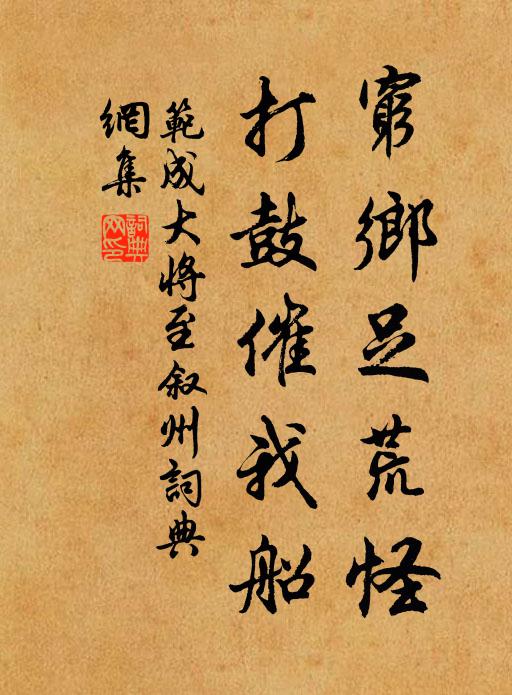 窮鄉足荒怪
打鼓催我船
範成大將至叙州詞典
網集
詞典
网印